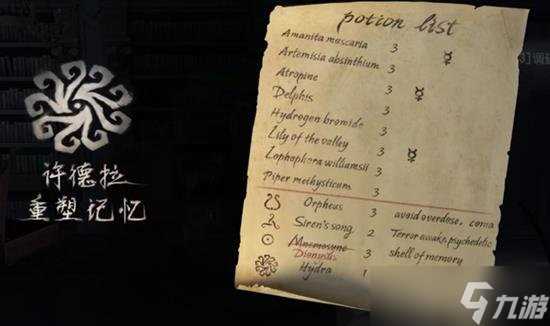 许德拉
重塑记忆
potion list
Amanita muscaria 3
Artemisia absinthium 3 ☿
Atropine 3
Delphis 3 ☿
Hydrogen bromide 3
Lily of the valley 3
Lophophora williamsii 3 ☿
Piper methysticum 3
Orpheus 3 avoid overdose, coma
Siren's song 2 Terror awake, psychedelic
Mnemosyne shell of memory
Dionysus
Hydra
九游